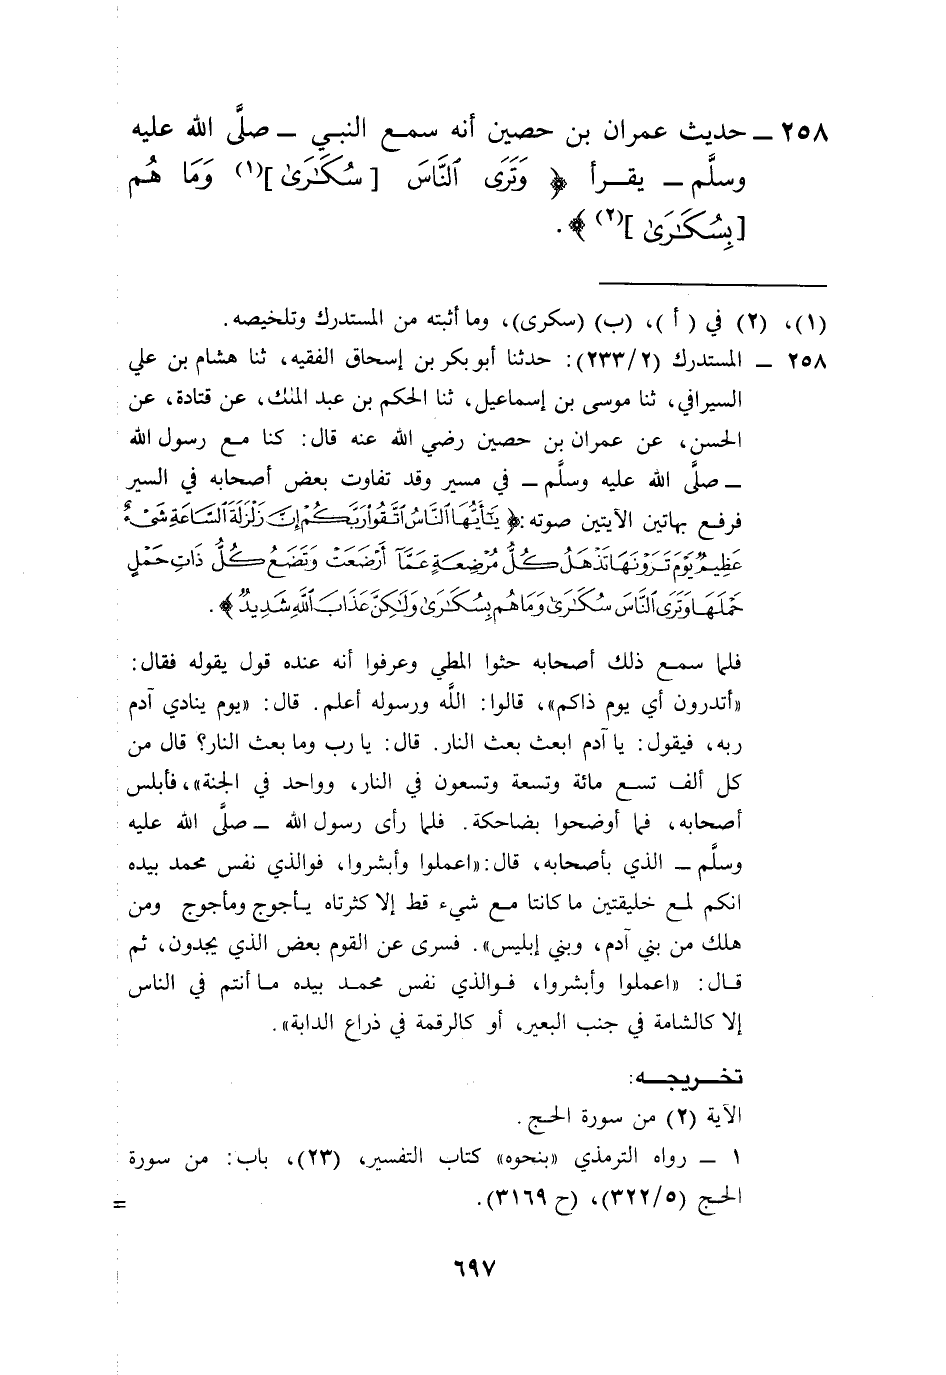 ٢٥٨ ــ حديث عمران بن حصين أنه سمع النبي ــ صلَّى الله عليه
وسلَّم ــ يقرأ ﴿ وَتَرَى ٱلنَّاسَ [سُكَـٰرَىٰ](١) وَمَا هُم
[بِسُكَـٰرَىٰ](٢)﴾.
(١)، (٢) في (أ)، (ب) (سكرى)، وما أثبته من المستدرك وتلخيصه.
٢٥٨ ــ المستدرك (٢٣٣/٢): حدثنا أبو بكر بن إسحاق الفقيه، ثنا هشام بن علي
السيرافي، ثنا موسى بن إسماعيل، ثنا الحكم بن عبد الملك، عن قتادة، عن
الحسن، عن عمران بن حصين رضي الله عنه قال: كنا مع رسول الله
ــ صلَّى الله عليه وسلَّم ــ في مسير وقد تفاوت بعض أصحابه في السير
فرفع بهاتين الآيتين صوته: ﴿ يَـٰٓأَيُّهَا ٱلنَّاسُ ٱتَّقُوا۟ رَبَّكُمْ إِنَّ زَلْزَلَةَ ٱلسَّاعَةِ شَىْءٌ
عَظِيمٌ يَوْمَ تَرَوْنَهَا تَذْهَلُ كُلُّ مُرْضِعَةٍ عَمَّآ أَرْضَعَتْ وَتَضَعُ كُلُّ ذَاتِ حَمْلٍ
حَمْلَهَا وَتَرَى ٱلنَّاسَ سُكَـٰرَىٰ وَمَا هُم بِسُكَـٰرَىٰ وَلَـٰكِنَّ عَذَابَ ٱللَّهِ شَدِيدٌ ﴾.
فلما سمع ذلك أصحابه حثوا المطي وعرفوا أنه عنده قول يقوله فقال:
«أتدرون أي يوم ذاكم»، قالوا: اللَّه ورسوله أعلم. قال: «يوم ينادي آدم
ربه، فيقول: يا آدم ابعث بعث النار. قال: يا رب وما بعث النار؟ قال من
كل ألف تسع مائة وتسعة وتسعون في النار، وواحد في الجنة»، فأبلس
أصحابه، فما أوضحوا بضاحكة. فلما رأى رسول الله ــ صلَّى الله عليه
وسلَّم ــ الذي بأصحابه، قال: «اعملوا وأبشروا، فوالذي نفس محمد بيده
انكم لمع خليقتين ما كانتا مع شيء قط إلا كثرتاه يأجوج ومأجوج ومن
هلك من بني آدم، وبني إبليس». فسرى عن القوم بعض الذي يجدون، ثم
قال: «اعملوا وأبشروا، فوالذي نفس محمد بيده ما أنتم في الناس
إلا كالشامة في جنب البعير، أو كالرقمة في ذراع الدابة».
تخريجه:
الآية (٢) من سورة الحج.
١ ــ رواه الترمذي «بنحوه» كتاب التفسير، (٢٣)، باب: من سورة
الحج (٣٢٢/٥)، (ح ٣١٦٩).
=
٦٩٧